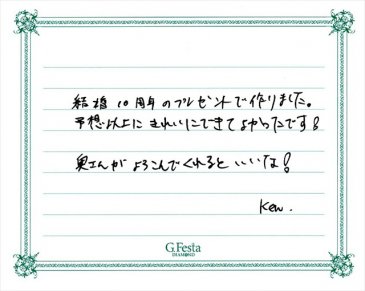 結婚10周年のプレゼントで作りました。
予想以上にきれいにできてよかったです!
奥さんがよろこんでくれるといいな!
Ken.
G.Festa
DIAMOND